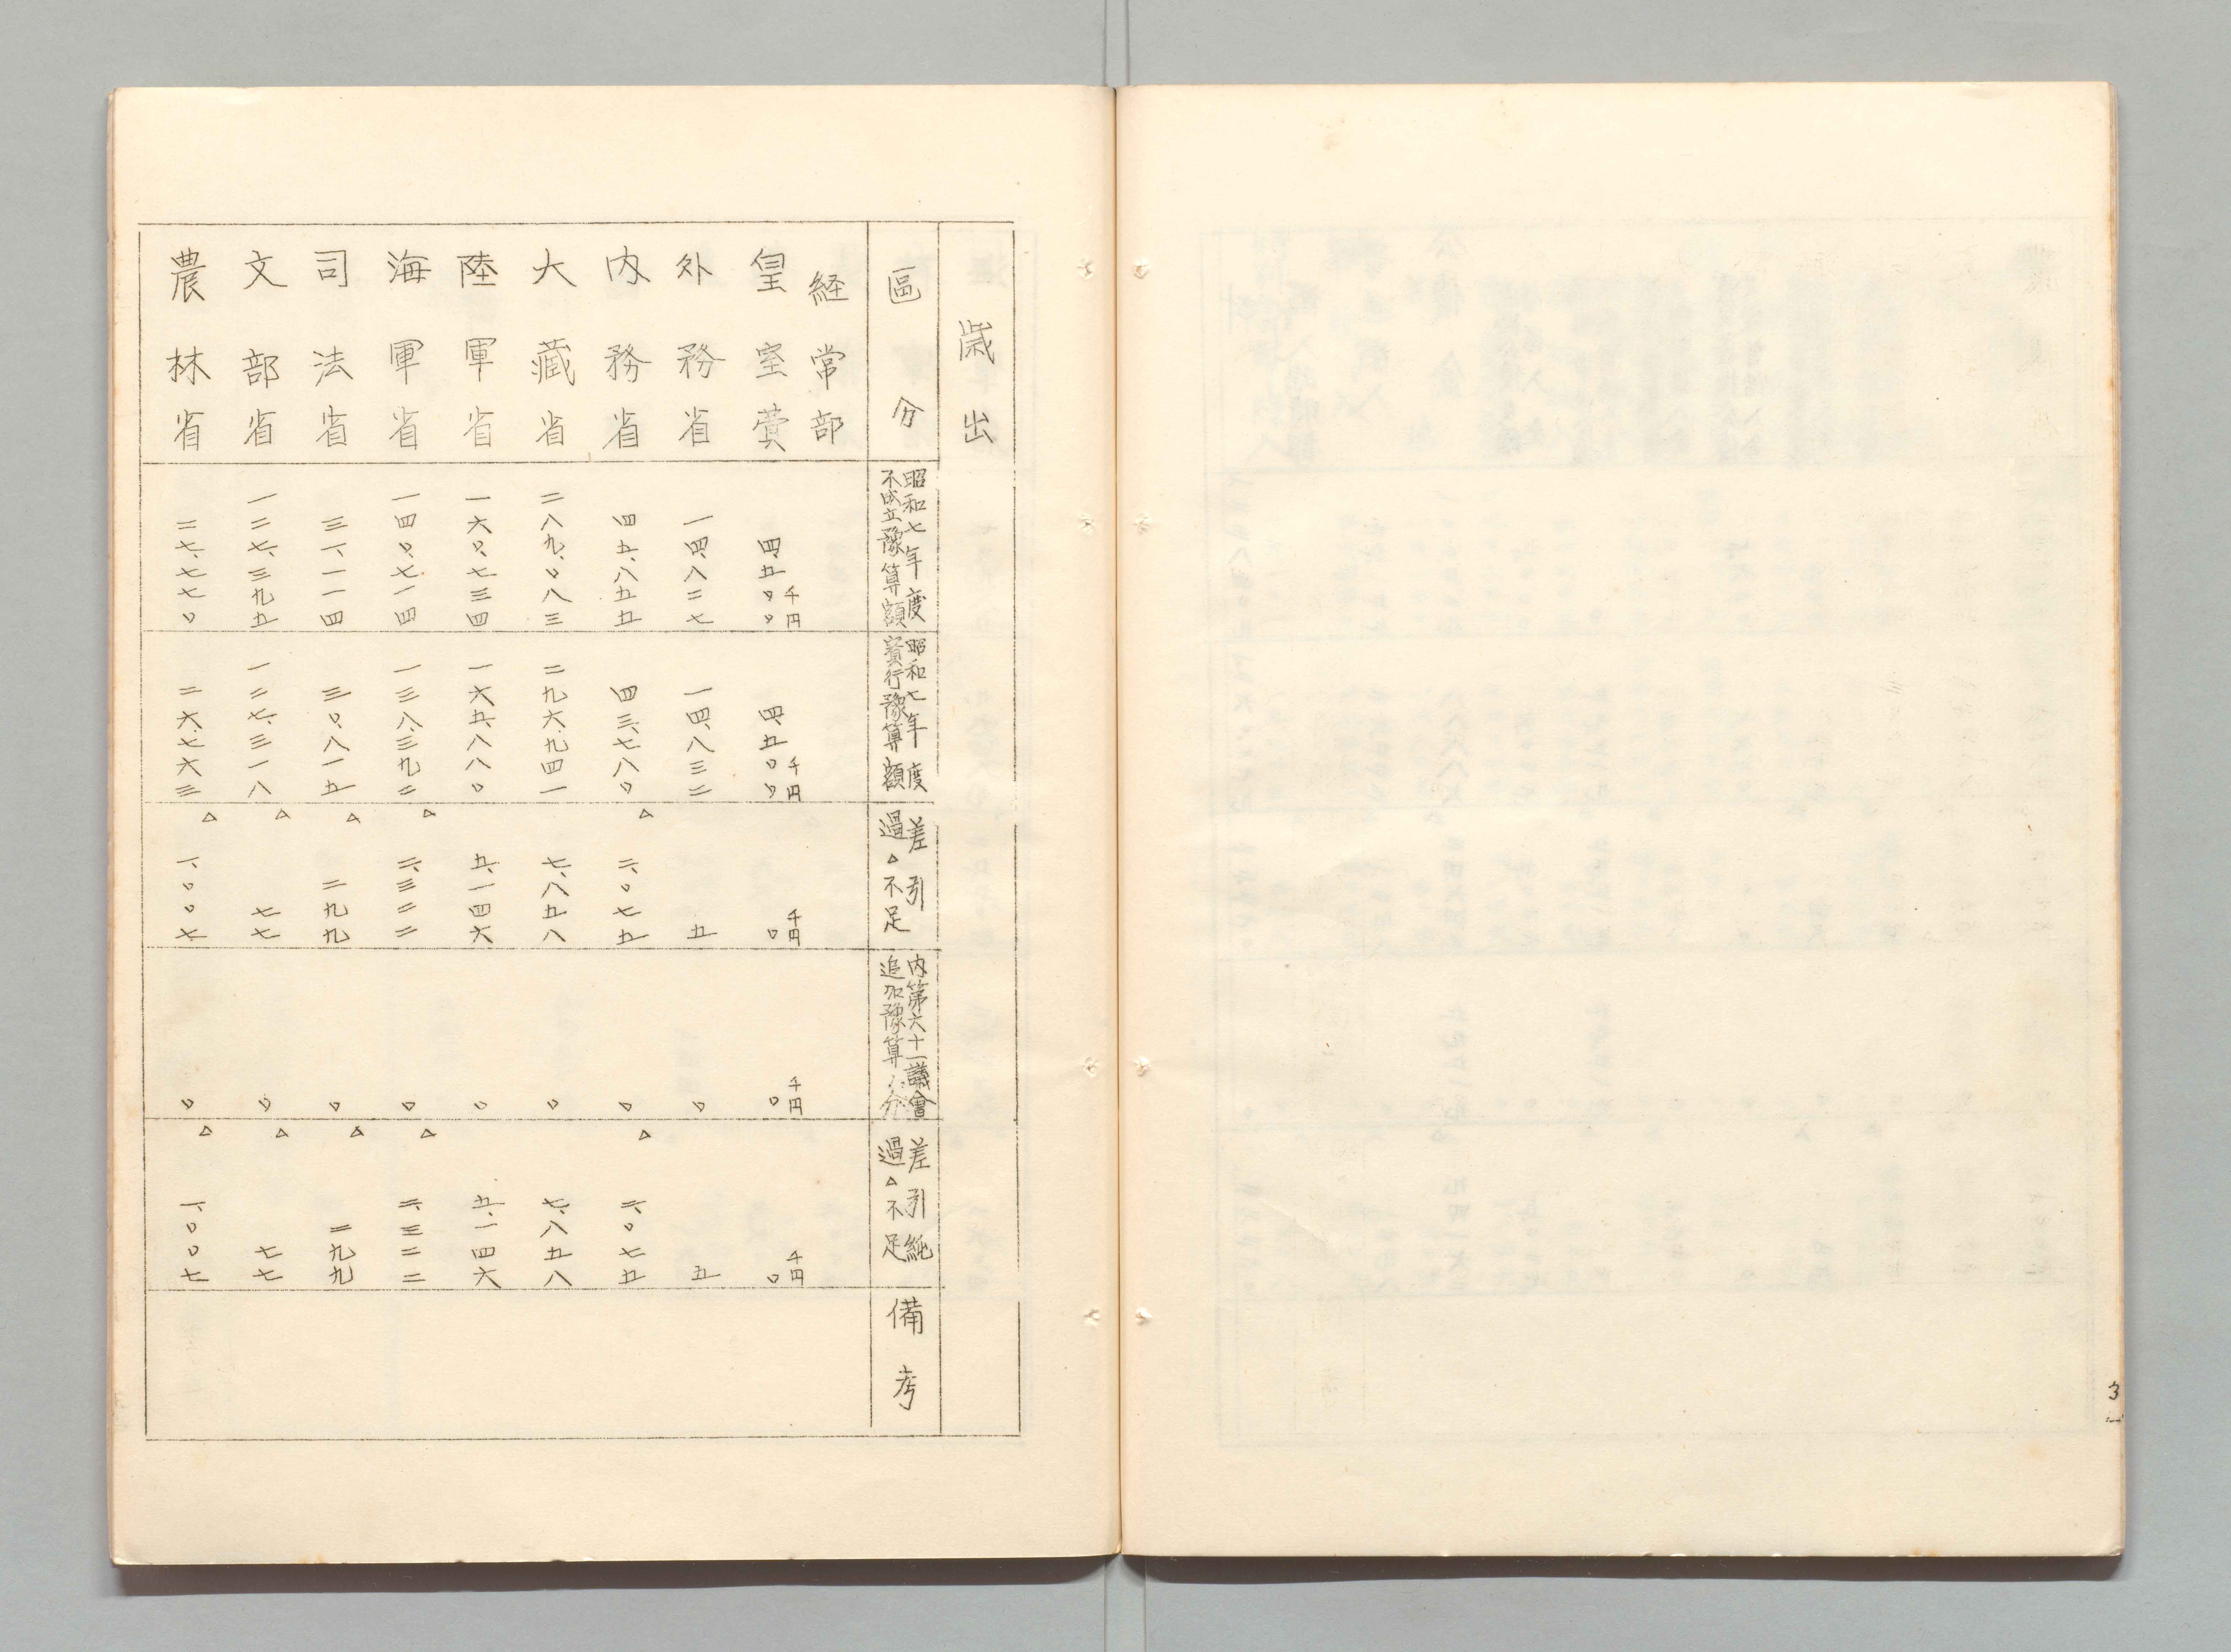 歳出
區分
昭和七年度
不成立豫算額
昭和七年度
實行豫算額
差引
過△不足
内第六十一議會
追加豫算ノ分
差引純
過△不足
備考
経常部
皇室費
千円
四、五〇〇
千円
四、五〇〇
千円
〇
千円
〇
千円
〇
外務省
一四、八二七
一四、八三二
五
〇
五
内務省
四五、八五五
四三、七八〇
△二、〇七五
〇
△二、〇七五
大藏省
二八九、〇八三
二九六、九四一
七、八五八
〇
七、八五八
陸軍省
一六〇、七三四
一六五、八八〇
五、一四六
〇
五、一四六
海軍省
一四〇、七一四
一三八、三九二
△二、三二二
〇
△二、三二二
司法省
三一、一一四
三〇、八一五
△二九九
〇
△二九九
文部省
一二七、三九五
一二七、三一八
△七七
〇
△七七
農林省
二七、七七〇
二六、七六三
△一、〇〇七
〇
△一、〇〇七